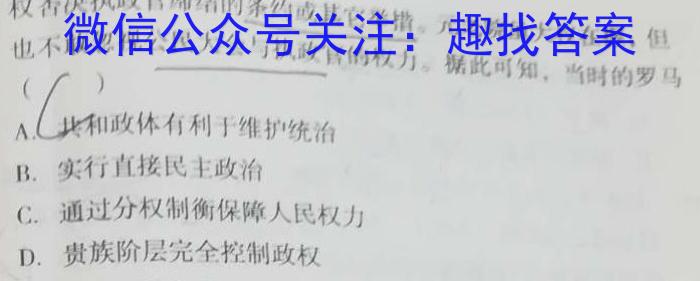 权否决执政官缔结的条约或其
微信公众号关注：趣找答案
也不 执政官的权力。据此可知，当时的罗马
（ ）
A. 共和政体有利于维护统治
B. 实行直接民主政治
C. 通过分权制衡保障人民权力
D. 贵族阶层完全控制政权